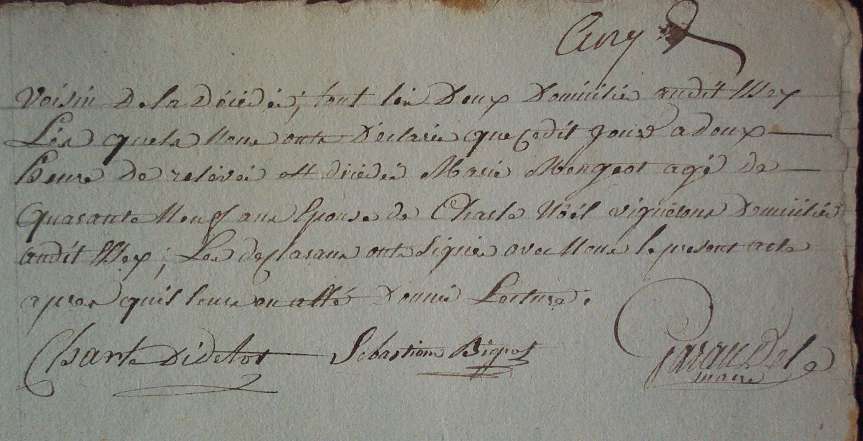 Cinq
voisin de la décédée, tout les deux domicilié audit Mex
Les quels nous onts déclarée que cedit jour a deux
heure de relévée est décédée Marie Mongeot agé de
quarante neuf ans Epouse de Charle Noël vignerons domicilié
audit Mex; Les declarans onts signée avec nous le present acte
apres quil leurs en atté donnée Lecture.
Charle Didelot Sebastien Bigeot
maire